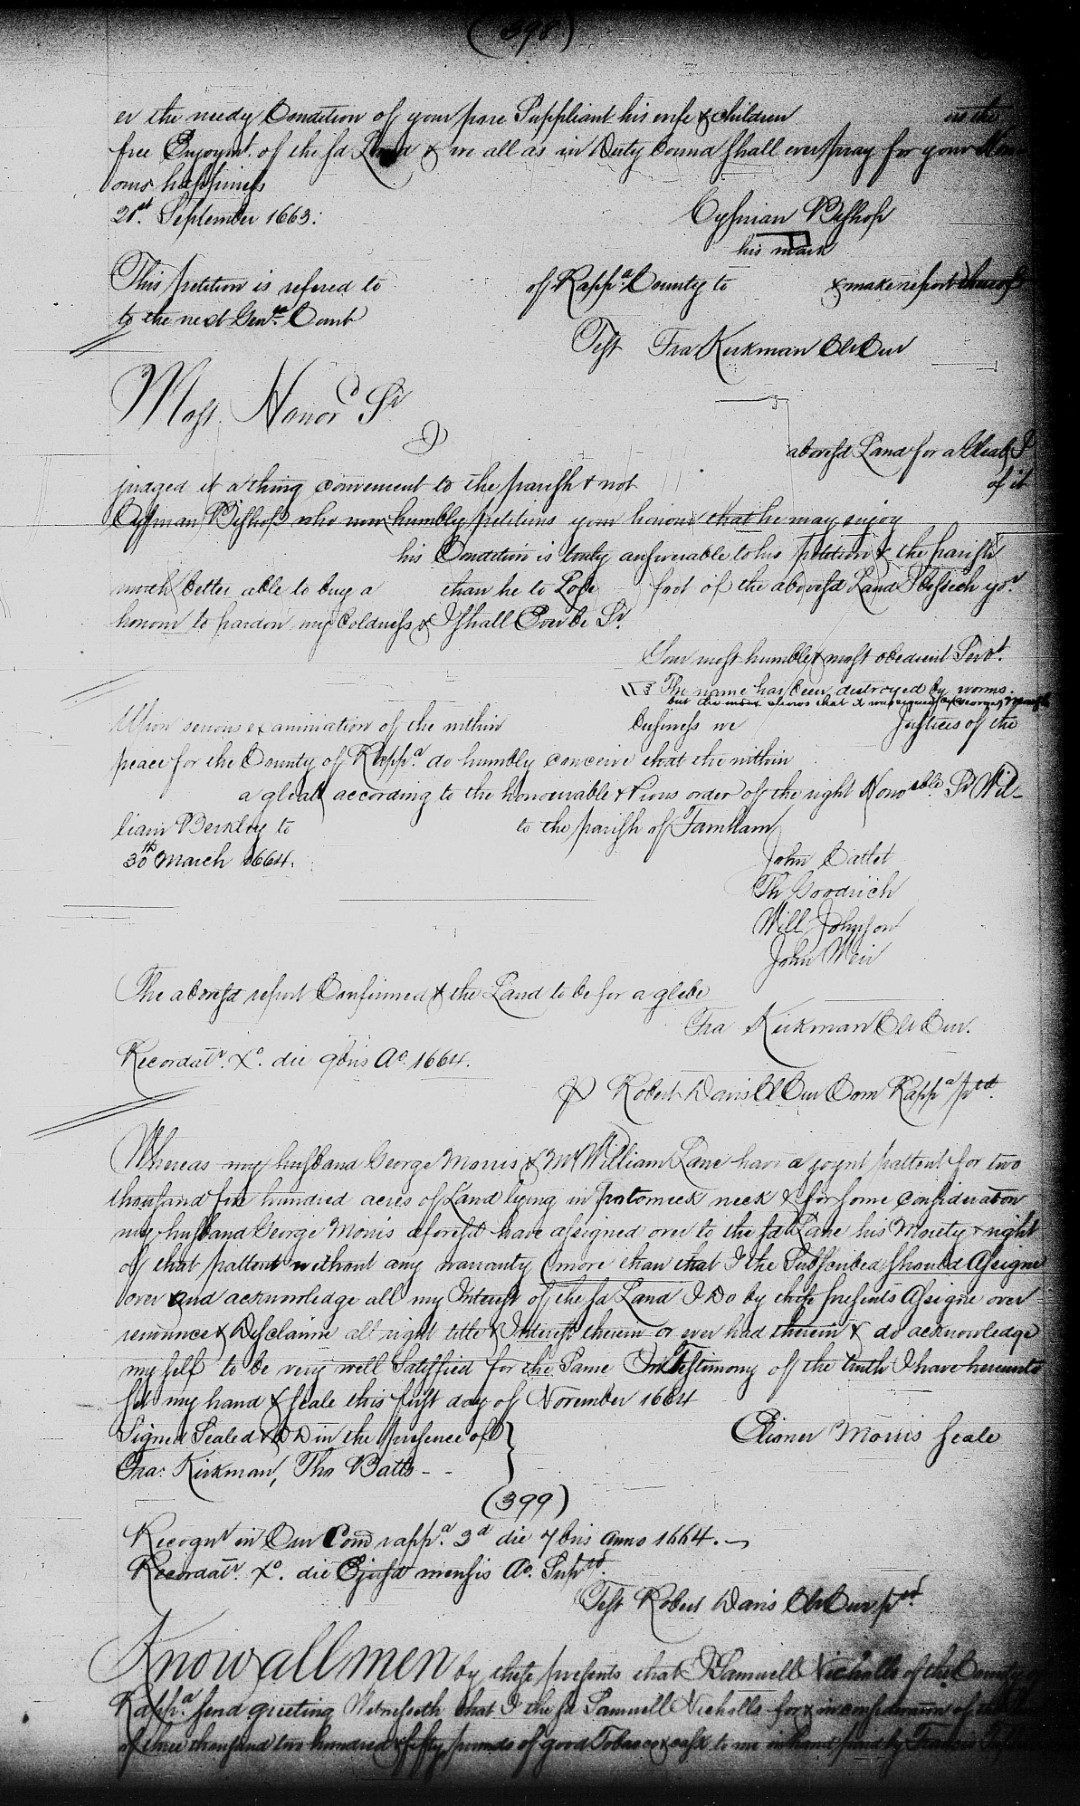 (398)
er the needy Condition of your pore Suppliant his wife & children in the
free Enjoymt. of the sd Land & we all as in Duty bound shall ever pray for your Hon
ours happiness
21st. September 1663:
Cyprian Bishop
his mark
This petition is refered to of Rappa. County to & make report thereof
to the next Genrll. Court
Test Fra Kirkman Cl Cur
Most Honord Sr
I
aboresd Land for a Gleab I
judged it a thing convenient to the parish & not of it
Cyprian Bishop who now humbly petitions your honour that he may enjoy
his Condition is truly answerable to his petition & the parish
much better able to buy a than he to Lose foot of the aboresd Land I beseech yor.
honour to pardon my boldness & I shall Ever be Sr.
Your most humble & most obedient Servt.
The name has been destroyed by worms.
but the index shows that it was signed by George
Upon serious examination of the within business we Justices of the
peace for the County of Rappa. do humbly conceive that the within
a gleab according to the honourable & Pious order of the right Honoable. Sr Wil-
liam Berkley to to the parish of Farnham
30th March 1664.
John Catlet
Th Goodrich
Will Johnson
John Weir
The aboresd report Confirmed & the Land to be for a glebe
Fra Kirkman Cl Cur.
Recordatr. Xo. die 9bris Ao. 1664.
p Robert Davis Cl Cur Com Rappa prd.
Whereas my husband George Morris & Mr William Lane have a joynt pattent for two
thousand five hundred acres of Land lying in potomeck neck & for some consideration
my husband George Morris aforesd have assigned over to the sd Lane his Moiety & right
of that pattent without any warranty (more than that I the Subscribed should Assigne
over and acknowledge all my Interest of the sd Land I Do by these presents Assigne over
renounce & Disclaime all right title & Interest therein or ever had therein & do acknowledge
my self to be very well Satisfied for the Same In Testimony of the truth I have hereunto
Set my hand & seale this first day of November 1664
Signed Sealed & DD in the presence of
Elioner Morris seale
Fra: Kirkman, Tho Batts - -
(399)
Recognr in Cur Com rappa. 3d die 7bris anno 1664.
Recordatr. Xo. die Ejusd mensis Ao. Suprd.
Test Robert Davis Cl Cur prd
Know all men by these presents that I Samuell Nicholls of the County
Rappa. send greeting Witnesseth that I the sd Samuell Nicholls for & in consideration of the
of three thousand two hundred & fifty pounds of good Tobacco & cask to me in hand paid by Francis